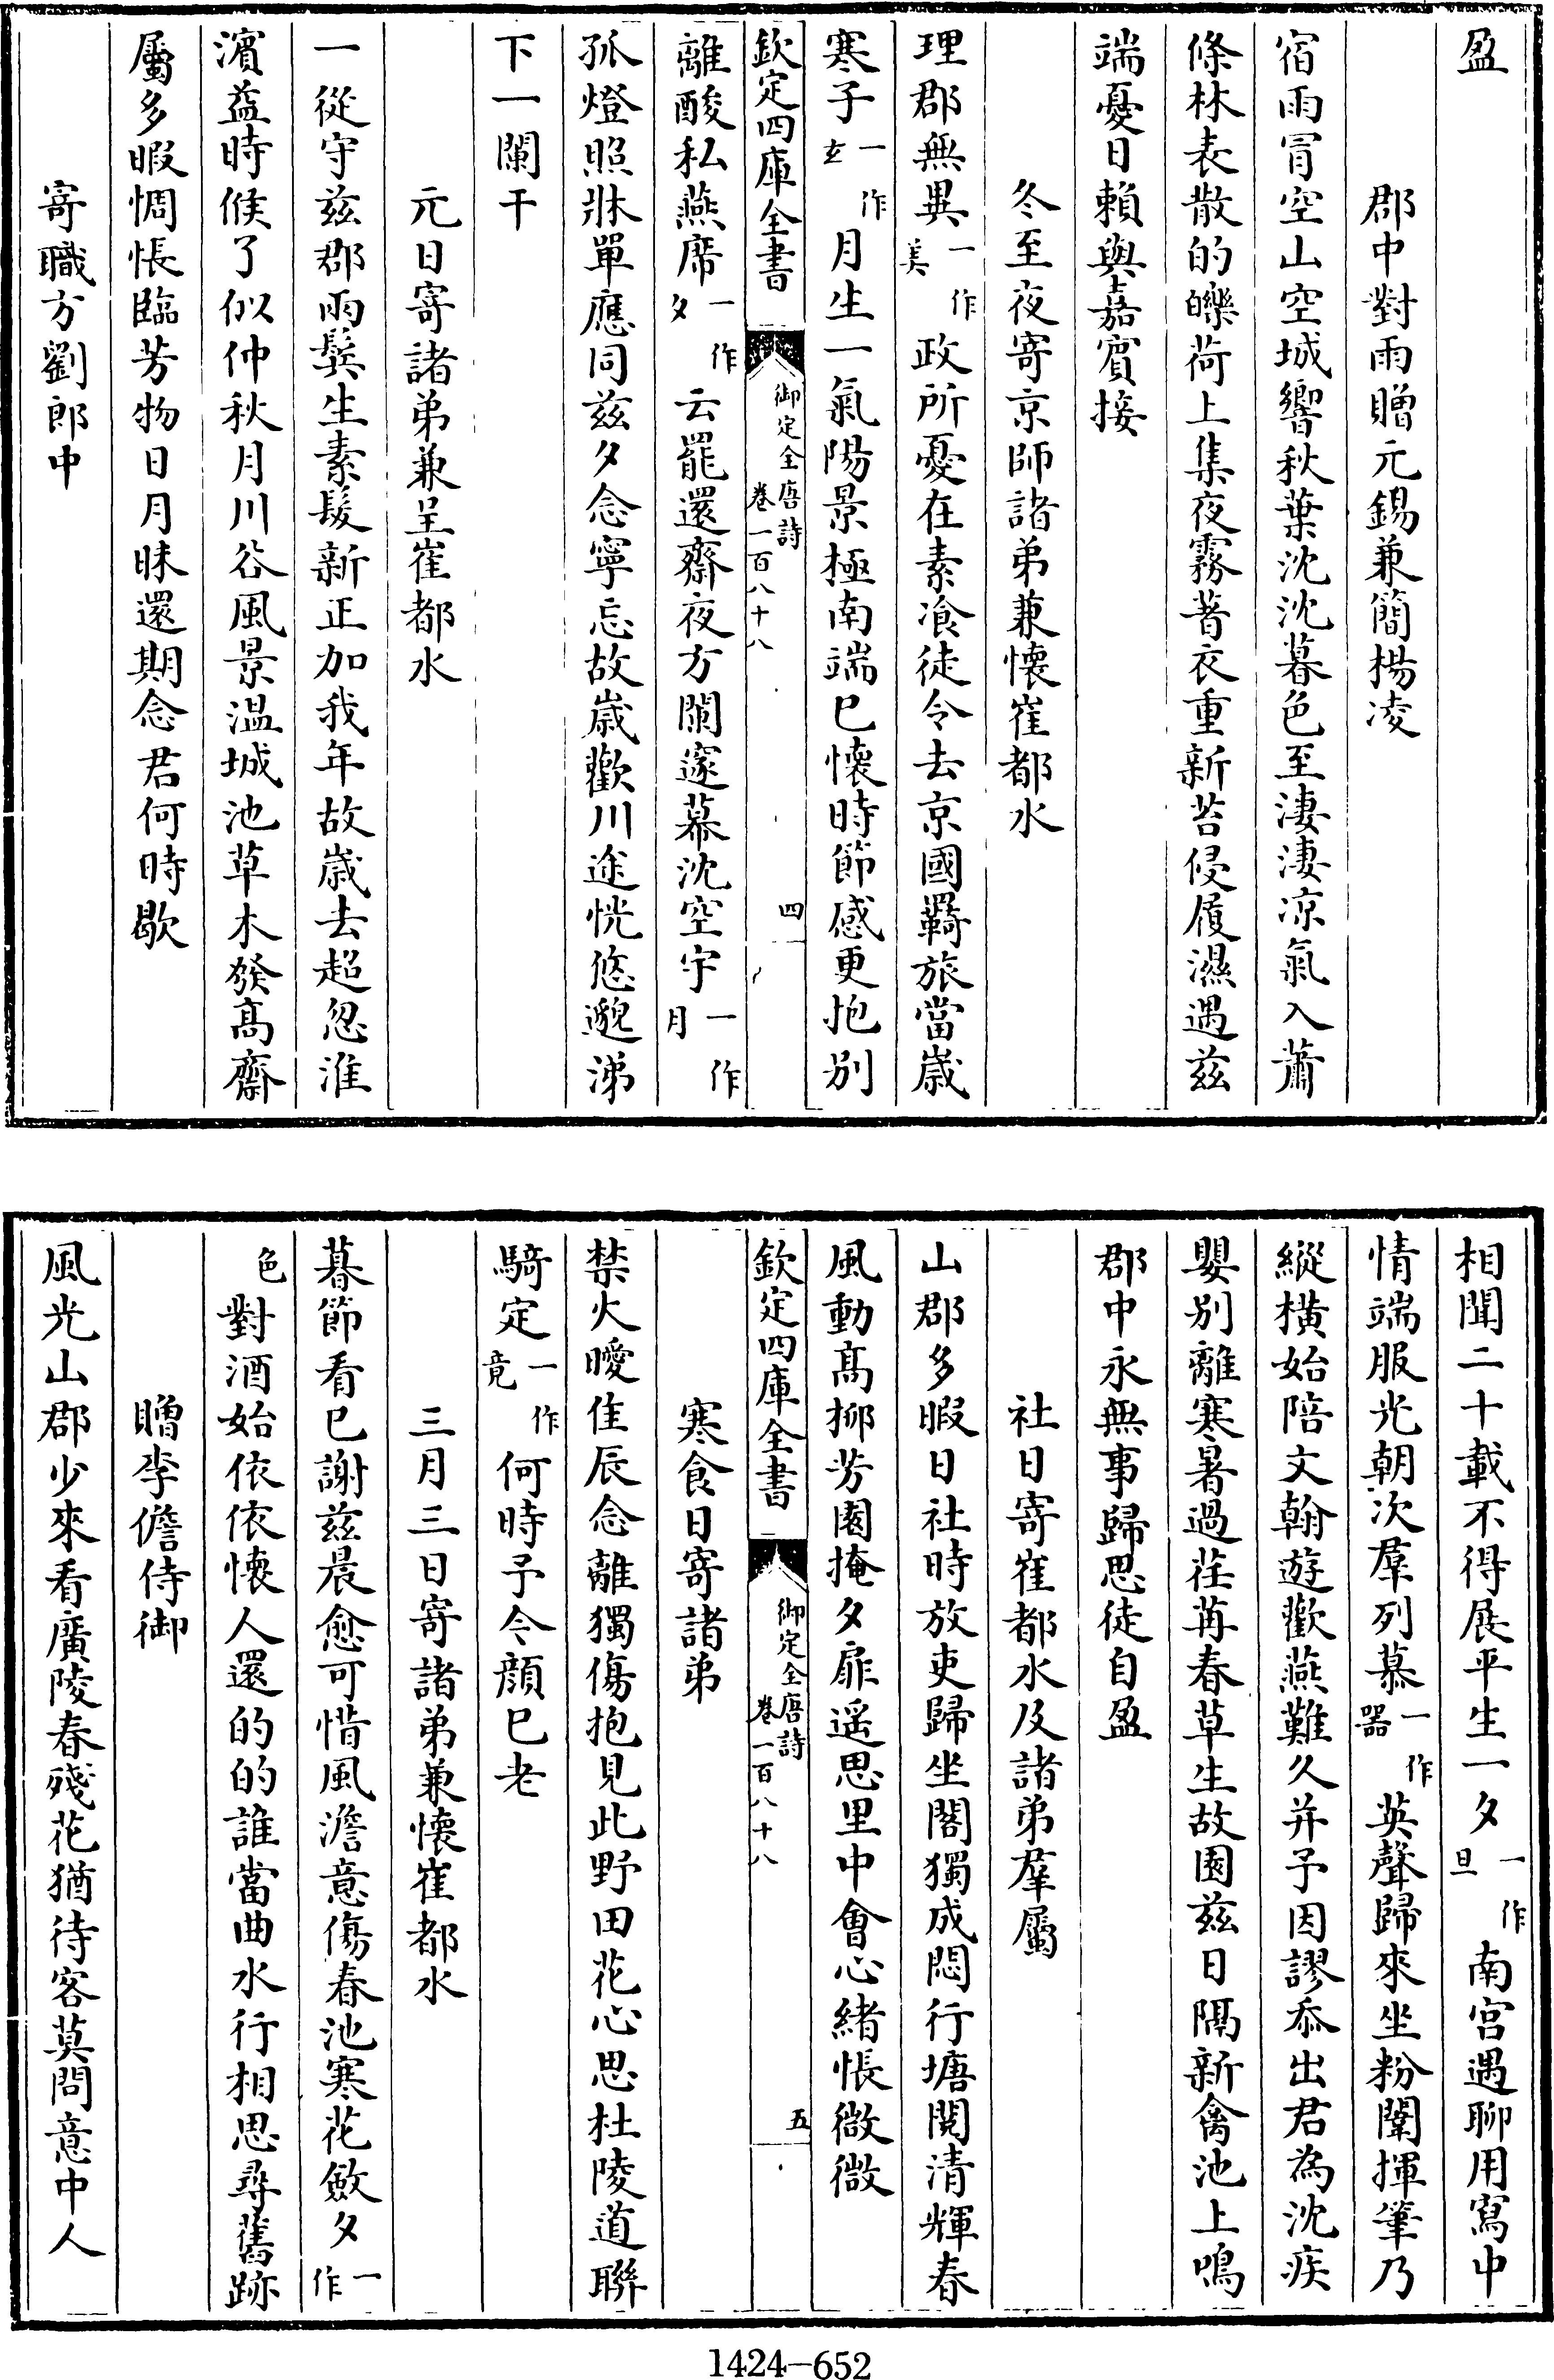 盈
郡中對雨贈元錫兼簡楊凌
宿雨冐空山空城響秋葉沈沈暮色至淒淒凉氣入蕭
條林表散的皪荷上集夜霧著衣重新苔侵履濕遇兹
端憂日賴與嘉賔接
冬至夜寄京師諸弟兼懷崔都水
理郡無異一作美政所憂在素飡徒令去京國羇旅當歲
寒子一作玄月生一氣陽景極南端已懷時節感更抱别
欽定四庫全書 御定全唐詩 卷一百八十八 四
離酸私燕席一作夕云罷還齋夜方闌邃幕沈空宇一作月
孤燈照牀單應同兹夕念寧忘故歲歡川途恍悠邈涕
下一闌干
元日寄諸弟兼呈崔都水
一從守兹郡兩鬓生素髮新正加我年故歲去超忽淮
濱益時候了似仲秋月川谷風景温城池草木發髙齋
屬多暇惆悵臨芳物日月昧還期念君何時歇
寄職方劉郎中
相聞二十載不得展平生一夕一作旦南宫遇聊用寫中
情端服光朝次羣列慕一作器英聲歸來坐粉闈揮筆乃
縱横始陪文翰遊歡燕難久并予因謬忝出君為沈疾
嬰别離寒暑過荏苒春草生故園兹日隔新禽池上鳴
郡中永無事歸思徒自盈
社日寄崔都水及諸弟羣屬
山郡多暇日社時放吏歸坐閣獨成悶行塘閲清輝春
風動髙柳芳園掩夕扉遥思里中會心緒悵微微
欽定四庫全書 御定全唐詩 卷一百八十八 五
寒食日寄諸弟
禁火曖佳辰念離獨傷抱見此野田花心思杜陵道聯
騎定一作竟何時予今顔已老
三月三日寄諸弟兼懷崔都水
暮節看已謝兹晨愈可惜風澹意傷春池寒花斂夕一作
色對酒始依依懷人還的的誰當曲水行相思尋舊跡
贈李儋侍御
風光山郡少來看廣陵春殘花猶待客莫問意中人
1424-652